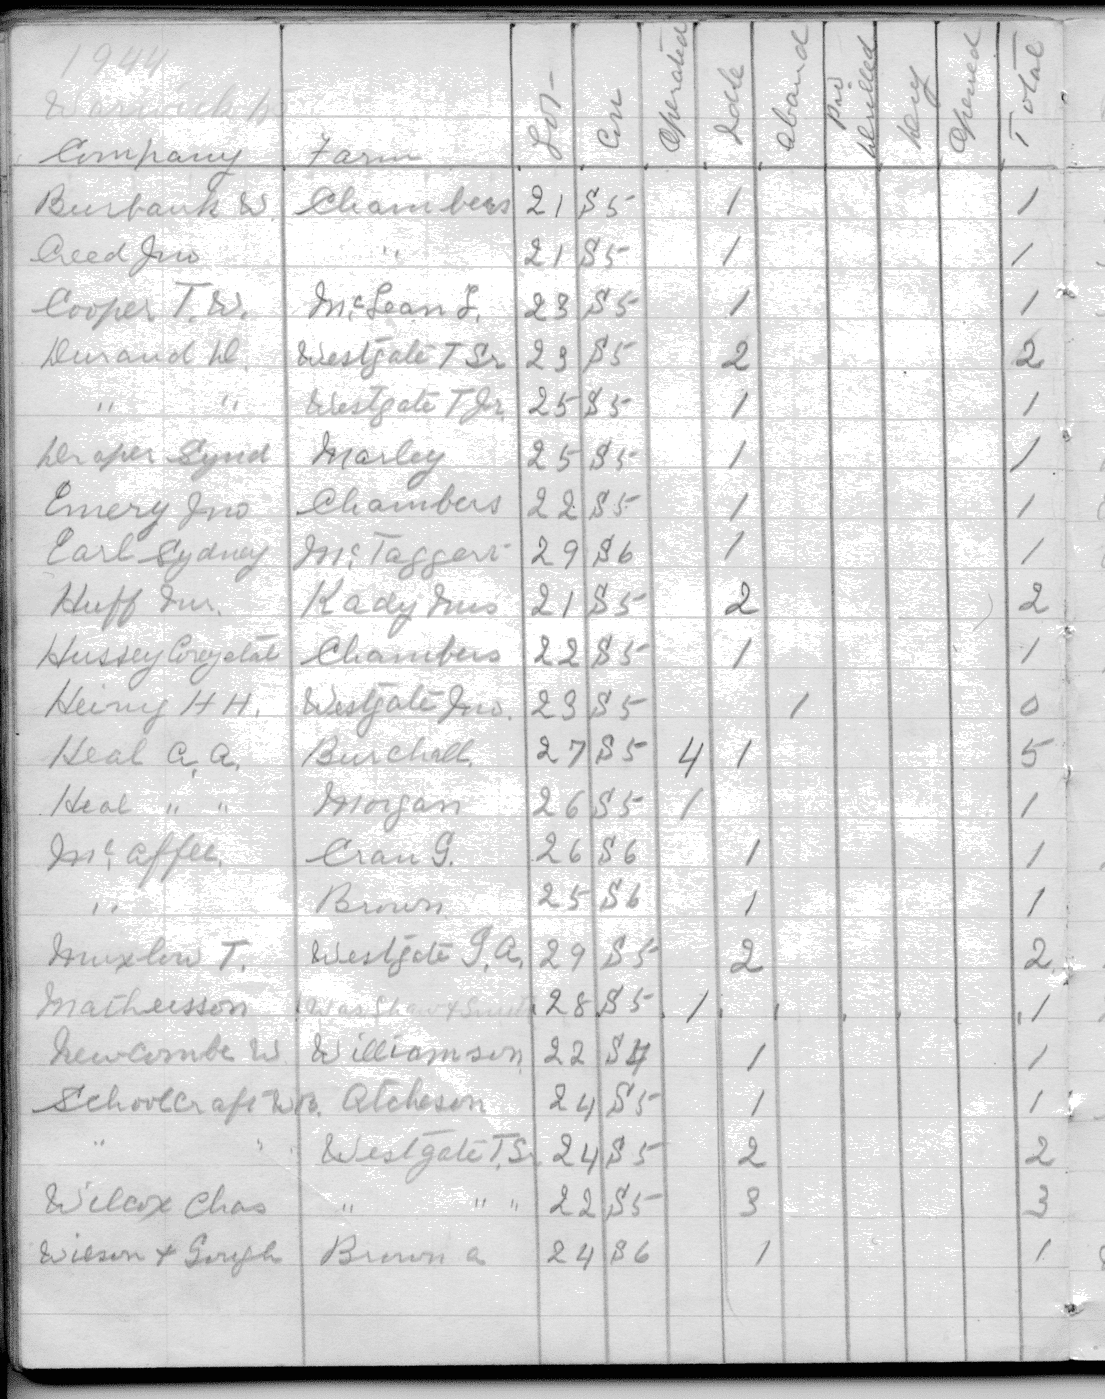 1944
Warwick
Company Farm Lot Con Operated Idle Aband Pro Drilled Dry Opened Total
Burbank W. Chambers 21 S5 1 1
Creed Jno " 21 S5 1 1
Cooper T. W. McLean L. 23 S5 1 1
Durand D. Westgate T Sr 23 S5 2 2
" " Westgate T Jr. 25 S5 1 1
Draper Synd Marley 25 S5 1 1
Emery Jno Chambers 22 S5 1 1
Earl Sydney McTaggert 29 S6 1 1
Huff Kady 21 S5 2 2
Hussey Chambers 22 S5 1 1
Heiny H H. Westgate Jno. 23 S5 1 0
Heal A. A. Burchell 27 S5 4 1 5
Heal " " Morgan 26 S5 1 1
McAffee. Cran G. 26 S6 1 1
" Brown 25 S6 1 1
Muxlow T. Westgate G. A. 29 S5 2 2
Matheusson Was Shaw + 28 S5 1 1
Newcombe W Williamson 22 S4 1 1
Schoolcraft W B. Atcheson 24 S5 1 1
" " Westgate T. Sr. 24 S5 2 2
Wilcox Chas " " " 22 S5 3 3
Wilson + Gough Brown A 24 S6 1 1